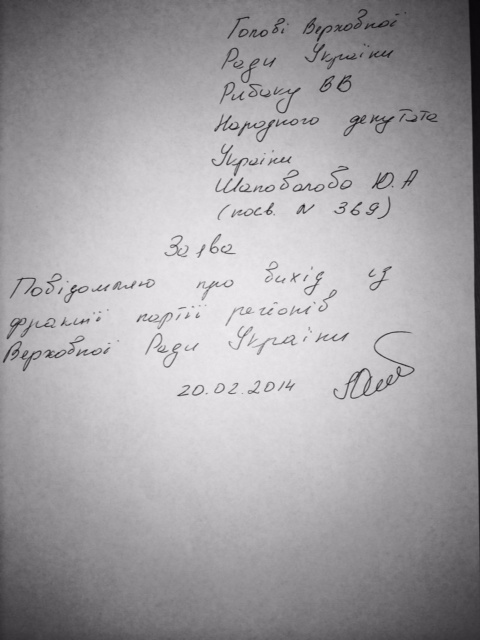 Голові Верховної
Ради України
Рибаку ВВ
Народного депутата
України
Шаповалова Ю.А
(посв. N 369)
Заява
Повідомляю про вихід із
фракції партії регіонів
Верховної Ради України
20.02.2014